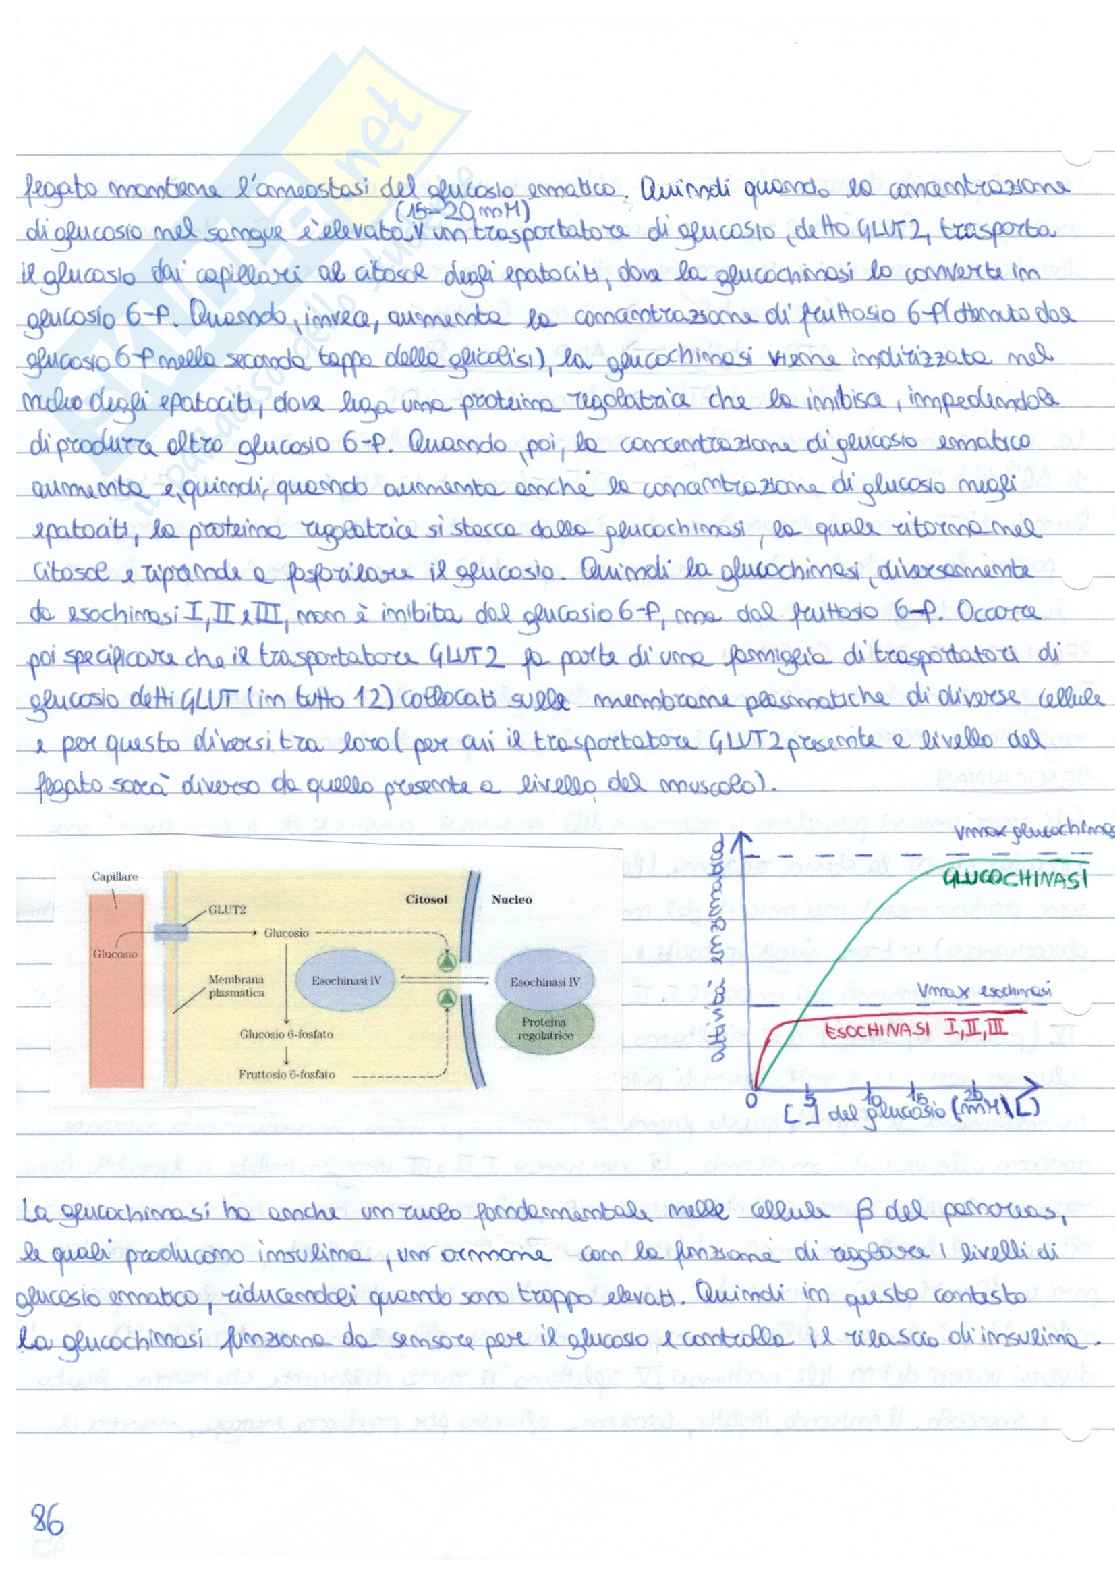 fegato mantiene l'omeostasi del glucosio ematico. Quindi quando la concentrazione
(15-20 mM)
di glucosio nel sangue è elevata, un trasportatore di glucosio, detto GLUT2, trasporta
il glucosio dai capillari al citosol degli epatociti, dove la glucochinasi lo converte in
glucosio 6-P. Quando, invece, aumenta la concentrazione di fruttosio 6-P (ottenuto dal
glucosio 6-P nella seconda tappa della glicolisi), la glucochinasi viene indirizzata nel
nucleo degli epatociti, dove lega una proteina regolatrice che la inibisce, impedendole
di produrre altro glucosio 6-P. Quando, poi, la concentrazione di glucosio ematico
aumenta e, quindi, quando aumenta anche la concentrazione di glucosio negli
epatociti, la proteina regolatrice si stacca dalla glucochinasi, la quale ritorna nel
citosol e riprende a fosforilare il glucosio. Quindi la glucochinasi, diversamente
da esochinasi I, II e III, non è inibita dal glucosio 6-P, ma dal fruttosio 6-P. Occorre
poi specificare che il trasportatore GLUT2 fa parte di una famiglia di trasportatori di
glucosio detti GLUT (in tutto 12) collocati sulle membrane plasmatiche di diverse cellule
e per questo diversi tra loro (per cui il trasportatore GLUT2 presente a livello del
fegato sarà diverso da quello presente a livello del muscolo).
Capillare
GLUT2
Citosol
Nucleo
Glucosio
Glucosio
Membrana
plasmatica
Esochinasi IV
Esochinasi IV
Proteina
regolatrice
Glucosio 6-fosfato
Fruttosio 6-fosfato
Vmax glucochinasi
GLUCOCHINASI
attività enzimatica
Vmax esochinasi
ESOCHINASI I, II, III
0 5 10 15 20
[ ] del glucosio (mM)
La glucochinasi ha anche un ruolo fondamentale nelle cellule β del pancreas,
le quali producono insulina, un ormone con la funzione di regolare i livelli di
glucosio ematico, riducendoli quando sono troppo elevati. Quindi in questo contesto
la glucochinasi funziona da sensore per il glucosio e controlla il rilascio di insulina.
86